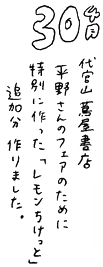 30 4月
代官山 蔦屋書店
平野さんのフェアのために
特別に作った「レモンちけっと」
追加分 作りました。